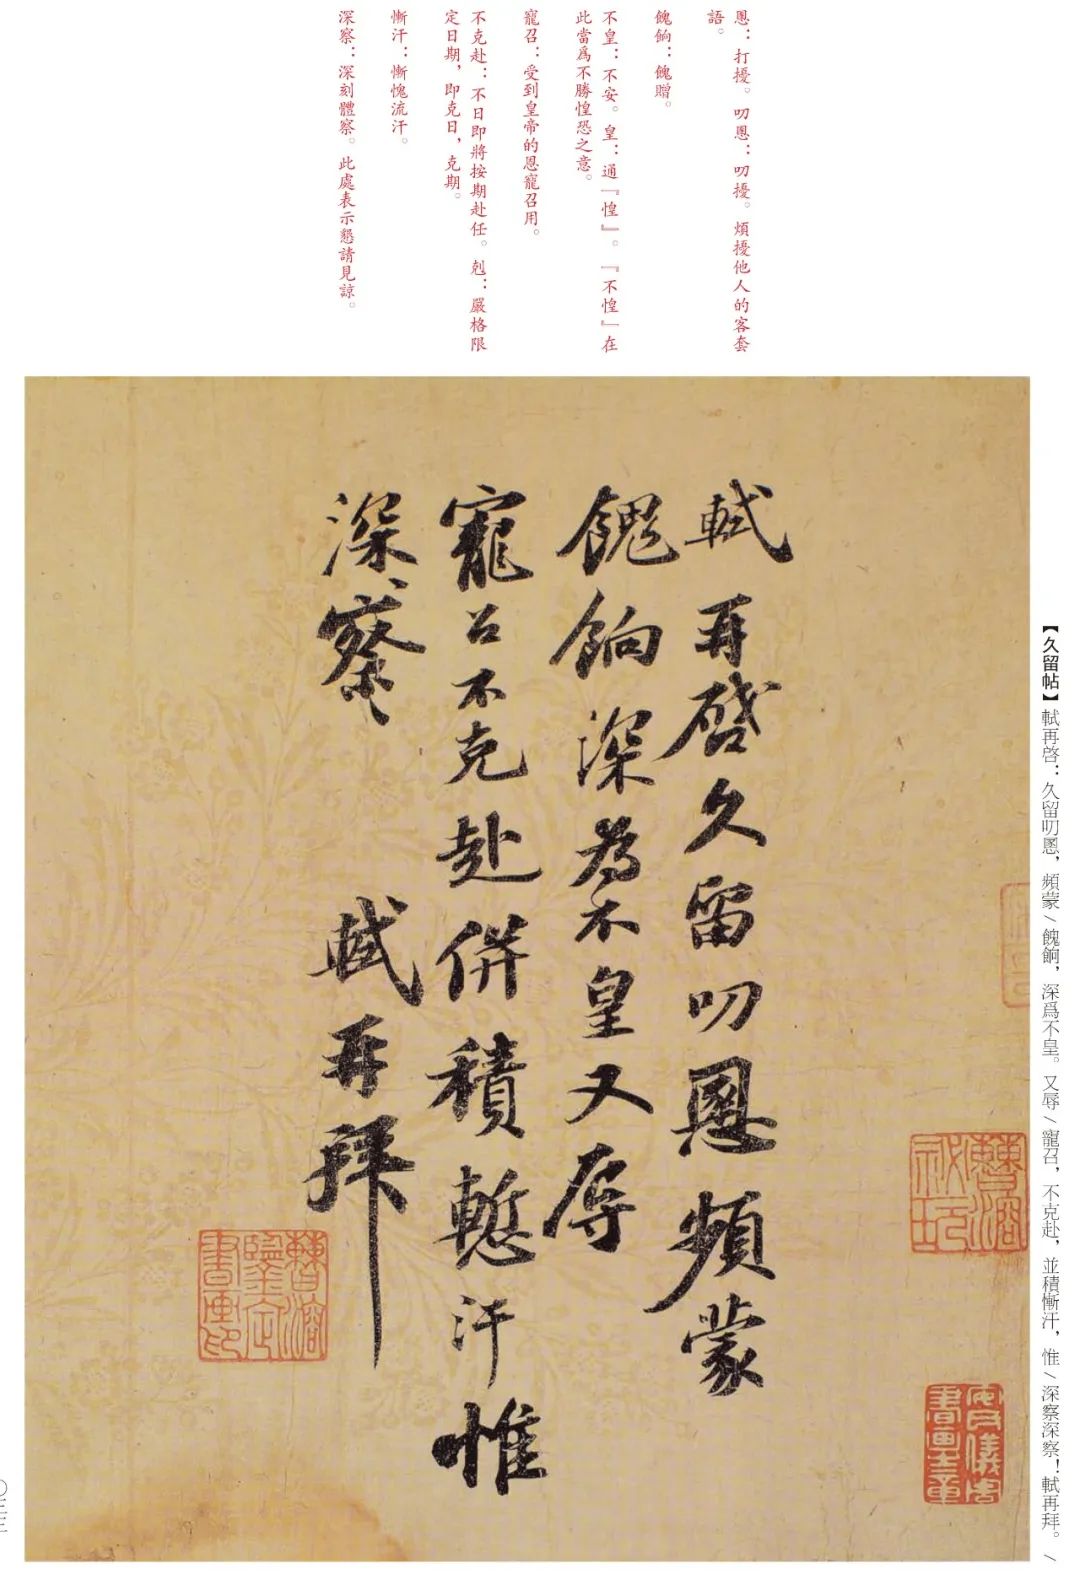 慁：打擾。叨慁：叨擾。煩擾他人的客套
語。
餽餉：餽贈。
不皇：不安。皇：通『惶』。『不惶』在
此當爲不勝惶恐之意。
寵召：受到皇帝的恩寵召用。
不克赴：不日即將按期赴任。剋：嚴格限
定日期，即克日，克期。
慚汗：慚愧流汗。
深察：深刻體察。此處表示懇請見諒。
【久留帖】軾再啓：久留叨慁，頻蒙/餽餉，深爲不皇。又辱/寵召，不克赴，並積慚汗，惟/深察深察！軾再拜。/
軾再啓久留叨慁頻蒙
餽餉深為不皇又辱
寵召不克赴併積慙汗惟
深察
軾再拜
曹溶鑒定書畫印
曹溶祕玩
安儀周書畫之章
〇三三